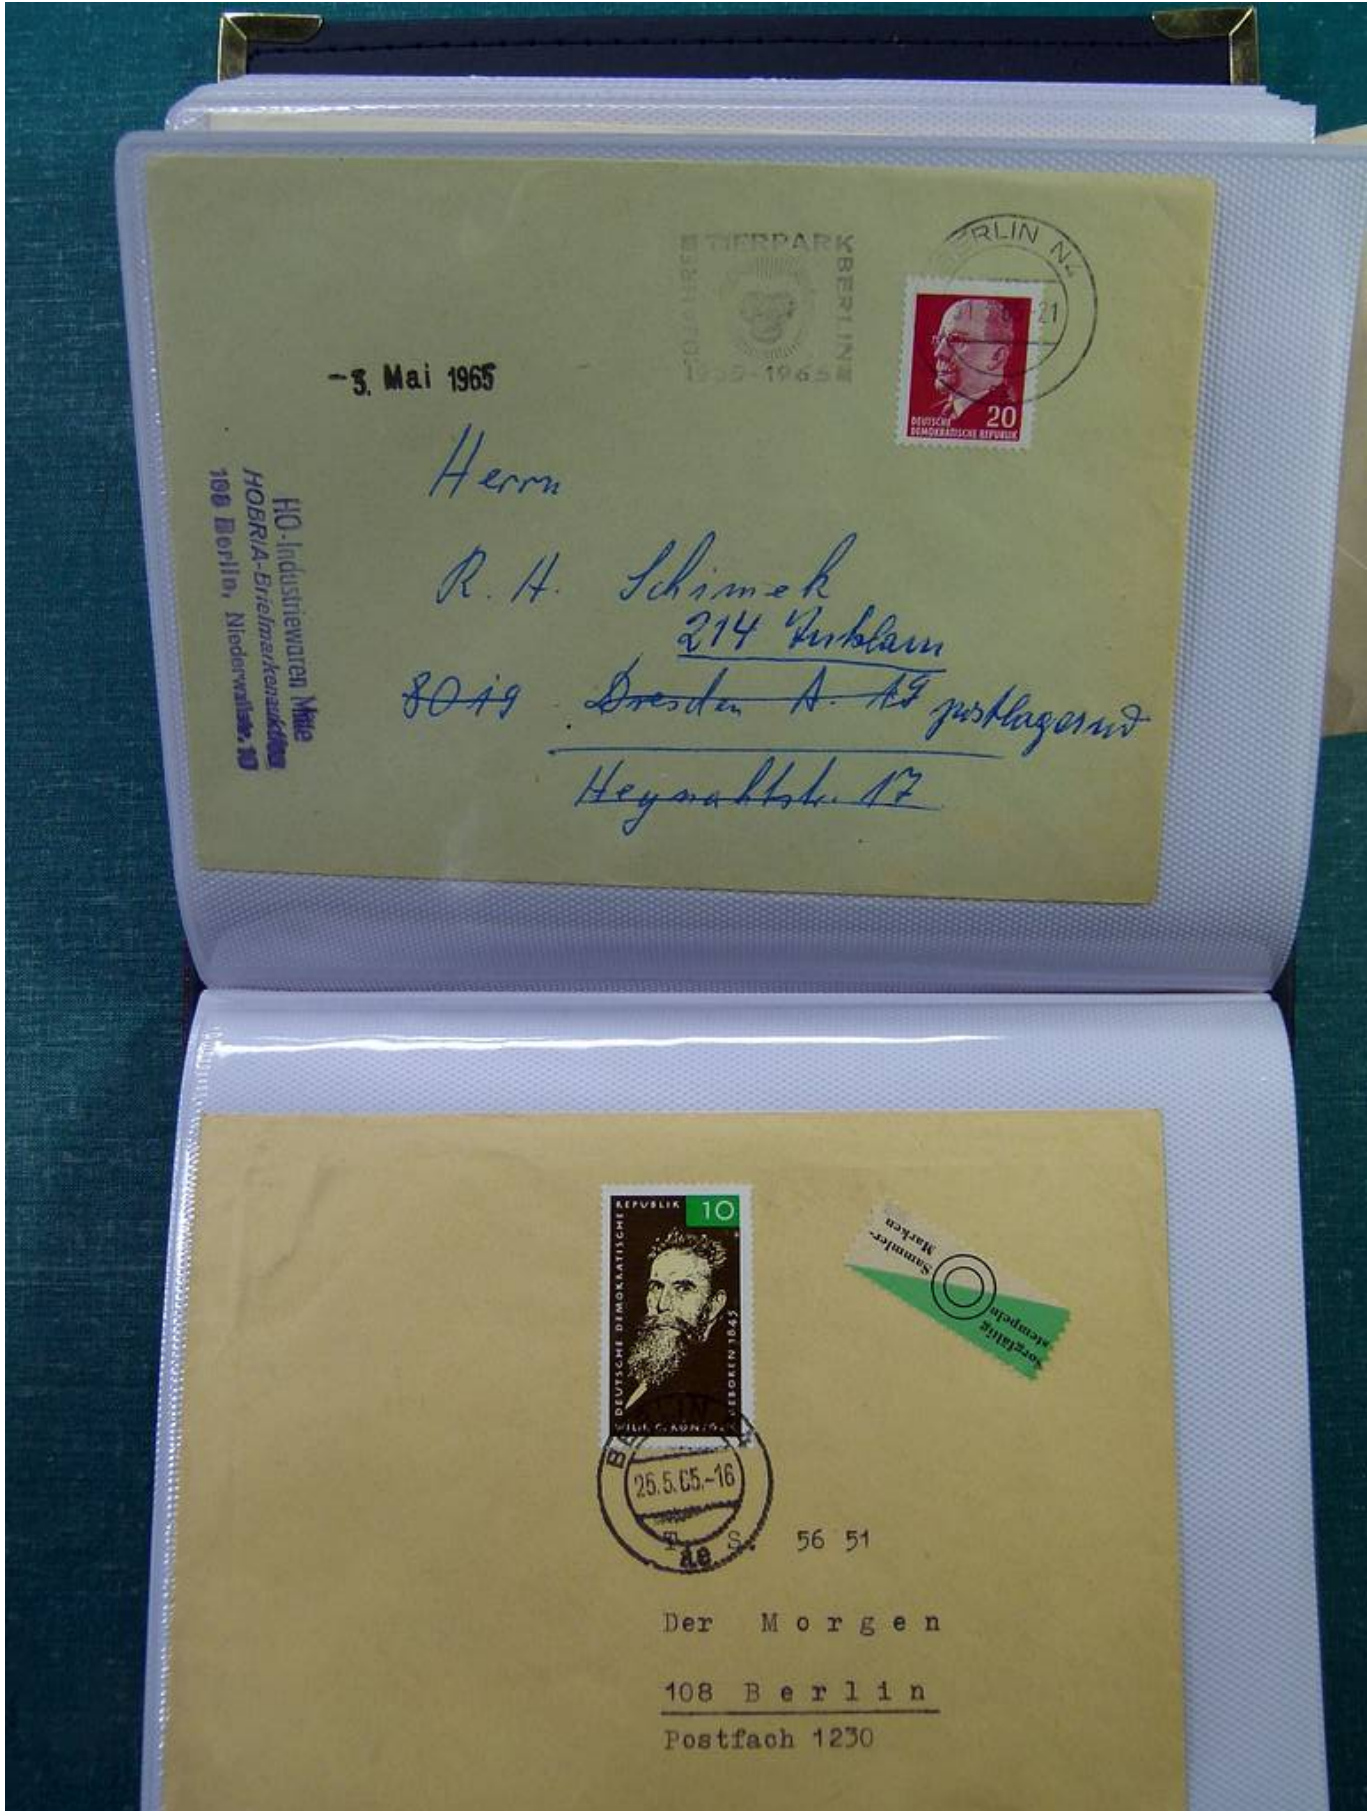 TIERPARK
BERLIN
JAHRE
1955-1965
BERLIN N4
-21
20
DEUTSCHE
DEMOKRATISCHE REPUBLIK
-3. Mai 1965
HO-Industriewaren Mitte
HOBRIA-Briefmarkenauktion
108 Berlin, Niederwallstr. 10
Herrn
R. H. Schimek
214 Anklam
8019 Dresden A. 19 postlagernd
Heynahtstr. 17
REPUBLIK 10
DEUTSCHE DEMOKRATISCHE
GEBOREN 1845
WILH. C. RÖNTGEN
BERLIN
25.5.65.-16
ae
Sammler-
Marken
Sorgfältig
stempeln
T S. 56 51
Der Morgen
108 Berlin
Postfach 1230